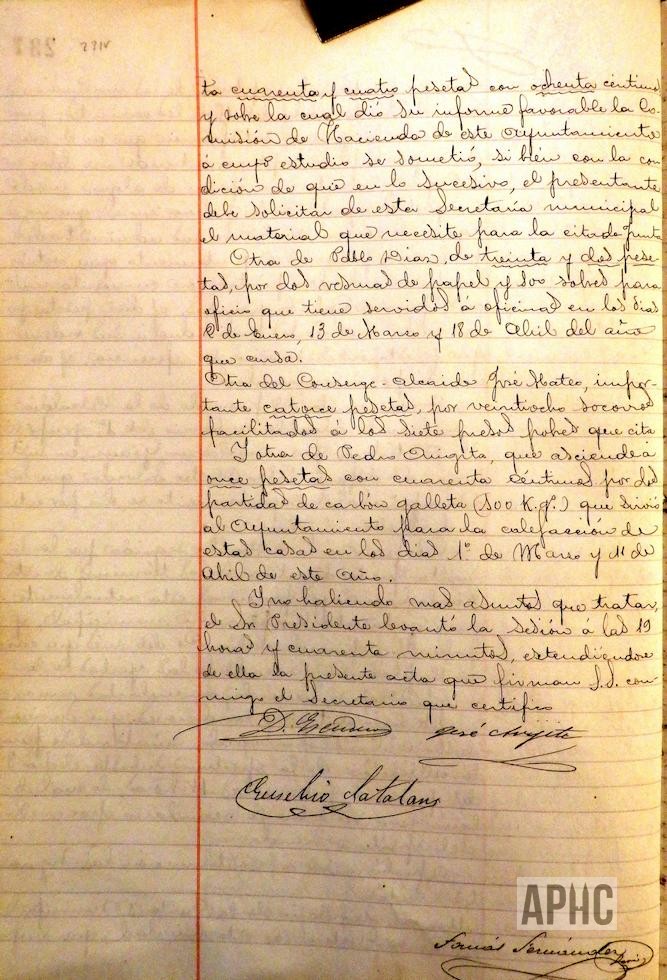 ta cuarenta y cuatro pesetas con ochenta céntimos
y sobre la cual dió su informe favorable la Co-
misión de Hacienda de este Ayuntamiento
á cuyo estudio se sometió, si bién con la con-
dición de que en lo sucesivo, el presentante
debe solicitar de esta Secretaría municipal
el material que necesite para la citada Junta
Otra de Pablo Dias, de treinta y dos pese-
tas, por dos resmas de papel y 500 sobres para
oficio que tiene servidos á oficinas en los dias
2 de Enero, 13 de Marzo y 18 de Abril del año
que cursa.
Otra del Conserge-alcaide José Mateo, impor-
tante catorce pesetas, por veintiocho socorros
facilitados á los siete presos pobres que cita
Y otra de Pedro, que asciende á
once pesetas con cuarenta céntimos por dos
partidas de carbón galleta (300 K.gs.) que sirvió
al Ayuntamiento para la calefacción de
estas casas en los dias 1º de Marzo y 11 de
Abril de este Año.
Y no habiendo mas asuntos que tratar,
el Sr Presidente levantó la sesión á las 19
horas y cuarenta minutos, estendiéndose
de ella la presente acta que firman S.S. con-
migo el Secretario que certifico
D.
José
Eusebio Catalano
APHC
Tomás Fernández